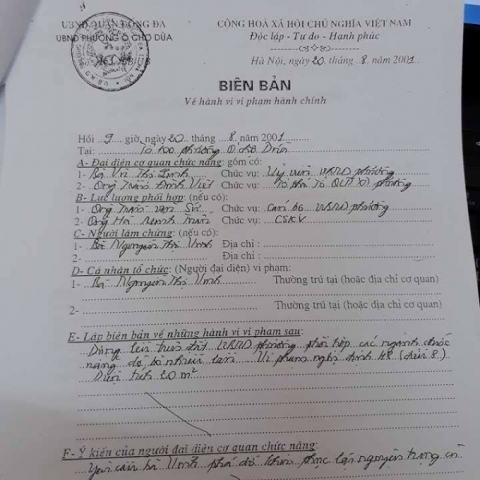 UBND QUẬN ĐỐNG ĐA
UBND PHƯỜNG Ô CHỢ DỪA
CỘNG HOÀ XÃ HỘI CHỦ NGHĨA VIỆT NAM
Độc lập - Tự do - Hạnh phúc
Hà Nội, ngày 20 tháng 8 năm 2001
BIÊN BẢN
Về hành vi vi phạm hành chính
Hồi 9 giờ, ngày 20 tháng 8 năm 2001
Tại: phường Ô chợ Dừa
A- Đại diện cơ quan chức năng: gồm có:
1- Bà Vũ Thị Chức vụ: Uỷ viên UBND phường
2- Ông Trần Đình Việt Chức vụ: Tổ phó Tổ phường
B- Lực lượng phối hợp: (nếu có):
1- Ông Trần văn Chức vụ: Cán bộ UBND phường
2- Ông Hà Chức vụ: CSKV
C- Người làm chứng: (nếu có):
1- Bà Nguyễn Thị Vinh Địa chỉ :
2- Địa chỉ :
D- Cá nhân tổ chức: (Người đại diện) vi phạm:
1- Bà Nguyễn Thị Vinh Thường trú tại (hoặc địa chỉ cơ quan)
2- Thường trú tại (hoặc địa chỉ cơ quan)
E- Lập biên bản về những hành vi vi phạm sau:
UBND phường phối hợp các ngành chức
năng Vi phạm nghị định 48 (điều 8)
Diện tích 20 m²
F- Ý kiến của người đại diện cơ quan chức năng:
Yêu cầu bà Vinh phá dỡ khôi phục lại nguyên trạng